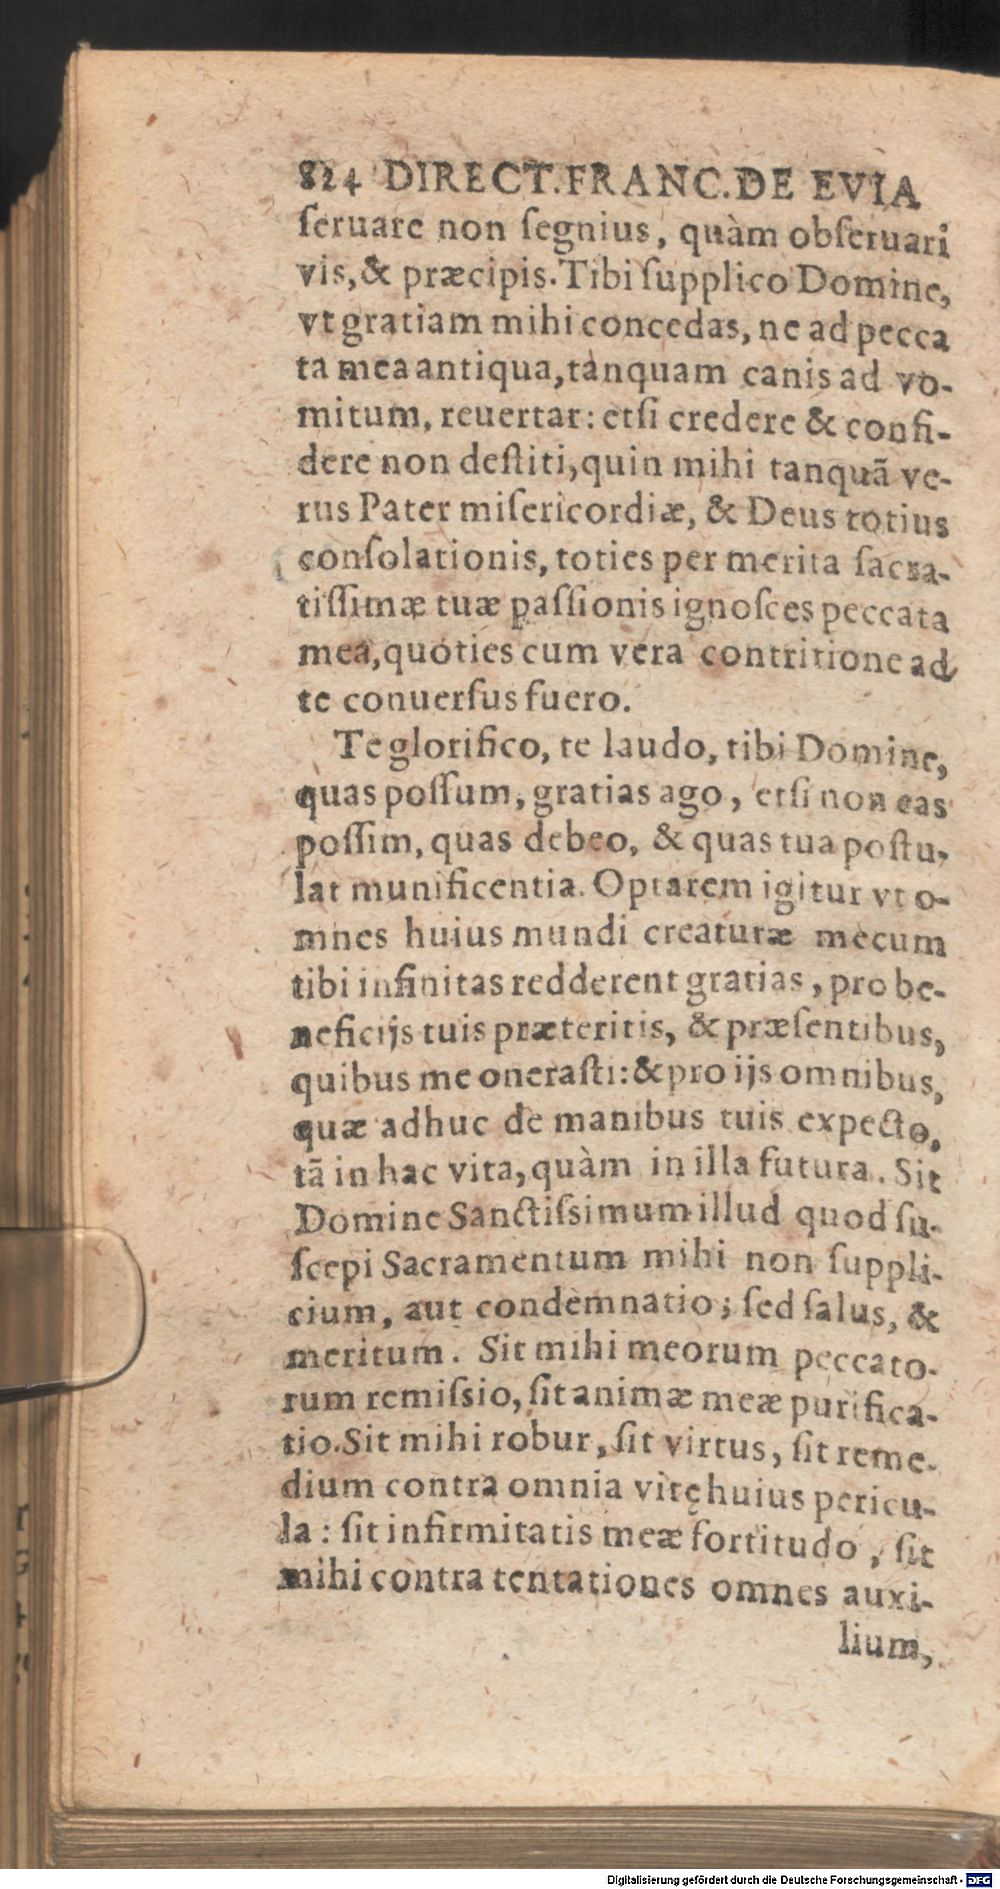 824 DIRECT.FRANC.DE EVIA
ſeruare non ſegnius, quàm obſeruari
vis,& præcipis. Tibi ſupplico Domine,
vt gratiam mihi concedas, ne ad pecca
ta mea antiqua, tanquam canis ad vo-
mitum, reuertar: etſi credere & confi-
dere non deſtiti, quin mihi tanquã ve-
rus Pater miſericordiæ, & Deus totius
conſolationis, toties per merita ſacra-
tiſſimæ tuæ paſſionis ignoſces peccata
mea, quoties cum vera contritione ad
te conuerſus fuero.
Te glorifico, te laudo, tibi Domine,
quas poſſum, gratias ago, etſi non eas
poſſim, quas debeo, & quas tua poſtu-
lat munificentia. Optarem igitur vt o-
mnes huius mundi creaturæ mecum
tibi infinitas redderent gratias, pro be-
neficijs tuis præteritis, & præſentibus,
quibus me oneraſti: & pro ijs omnibus,
quæ adhuc de manibus tuis expecto,
tã in hac vita, quàm in illa futura. Sit
Domine Sanctiſsimum illud quod ſu-
ſcepi Sacramentum mihi non ſuppli-
cium, aut condemnatio; ſed ſalus, &
meritum. Sit mihi meorum peccato-
rum remiſsio, ſit animæ meæ purifica-
tio. Sit mihi robur, ſit virtus, ſit reme-
dium contra omnia vitę huius pericu-
la: ſit infirmitatis meæ fortitudo, ſit
mihi contra tentationes omnes auxi-
lium,
Digitalisierung gefördert durch die Deutsche Forschungsgemeinschaft - DFG